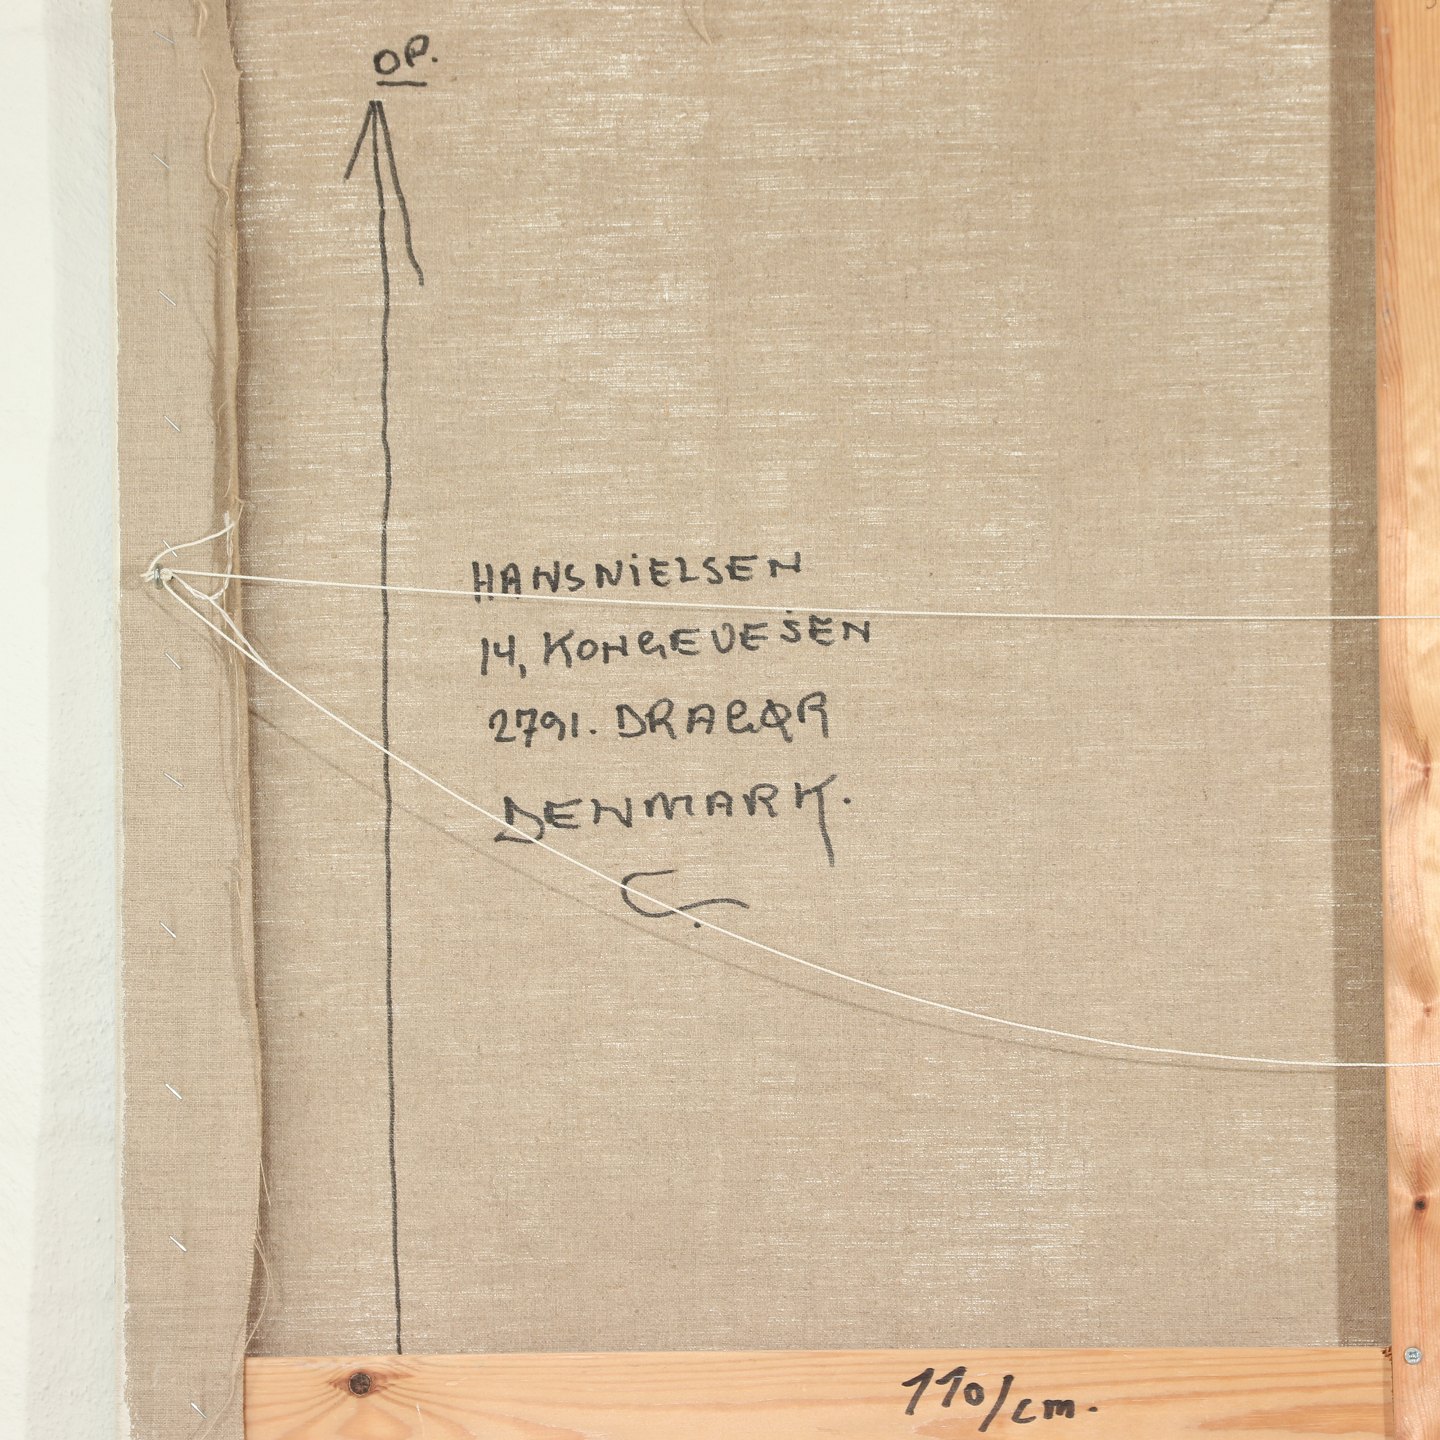 OP.
HANS NIELSEN
14, KONGEVEJEN
2791. DRAGØR
DENMARK.
110/cm.